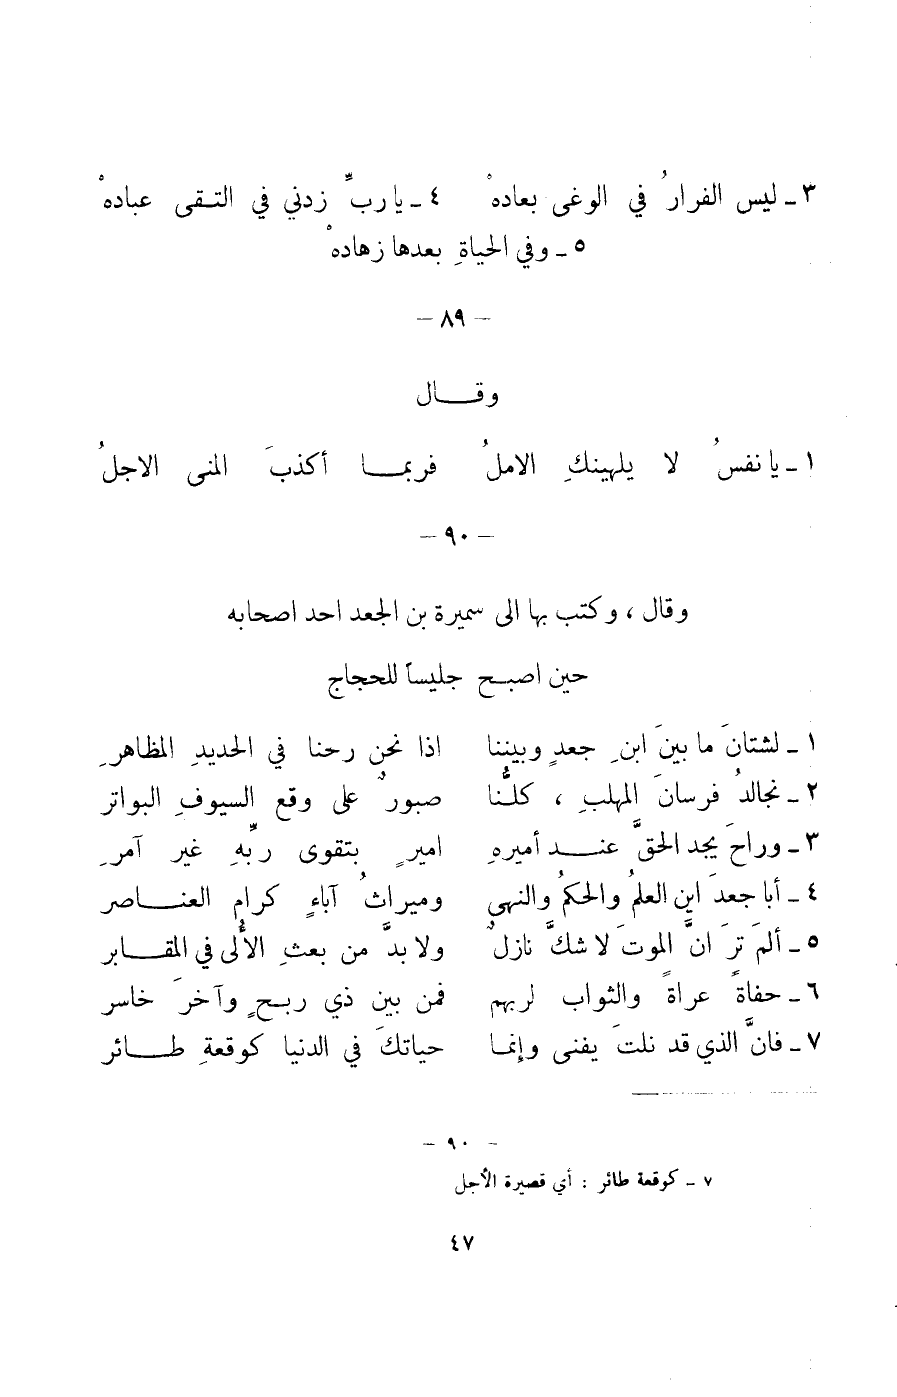 ٣ ـ ليس الفرارُ في الوغى بعادهْ ٤ ـ يا ربِّ زدني في التـقى عبادهْ
٥ ـ وفي الحياةِ بعدها زهادهْ
– ٨٩ –
وقـــال
١ ـ يا نفسُ لا يلهينكِ الاملُ فربمـــا أكذبَ المنى الاجلُ
– ٩٠ –
وقال ، وكتب بها الى سميرة بن الجعد احد اصحابه
حين اصبـح جليساً للحجاج
١ ـ لشتانَ ما بينَ ابنِ جعدٍ وبيننا اذا نحن رحنا في الحديدِ المظاهرِ
٢ ـ نجالدُ فرسانَ المهلبِ ، كلُّنا صبورٌ على وقع السيوفِ البواتر
٣ ـ وراحَ يجد الحقَّ عنـــد أميرهِ اميرٍ بتقوى ربِّهِ غير آمرِ
٤ ـ أبا جعدَ اين العلمُ والحكمُ والنهى وميراثُ آباءٍ كرام العنـــاصر
٥ ـ ألمَ ترَ انَّ الموتَ لا شكَّ نازلٌ ولا بدَّ من بعثِ الأُلى في المقـــابر
٦ ـ حفاةً عراةً والثواب لربهم فمن بين ذي ربـحٍ وآخرَ خاسر
٧ ـ فانَّ الذي قد نلتَ يفنى وإنمـا حياتكَ في الدنيا كوقعةِ طـــائر
– ٩٠ –
٧ ـ كوقعة طائر : أي قصيرة الأجل
٤٧